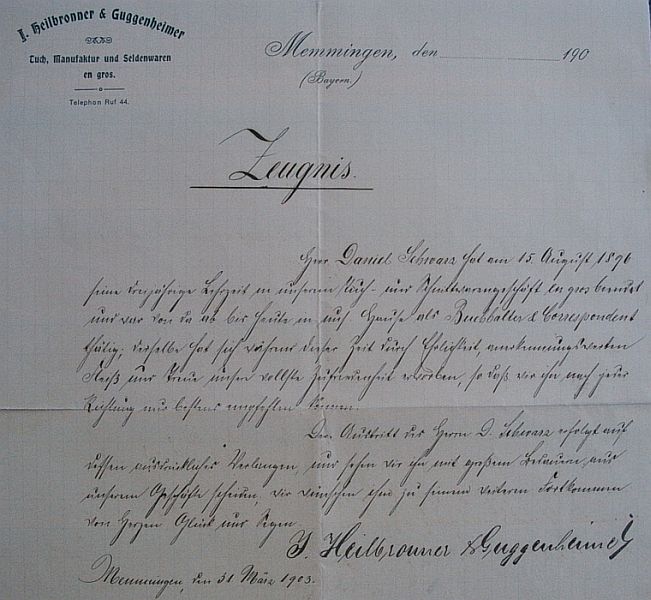 I. Heilbronner & Guggenheimer
Tuch, Manufaktur und Seidenwaren
en gros.
Telephon Ruf 44.
Memmingen, den 190
(Bayern.)
Zeugnis.
Herr Daniel Schwarz hat am 15. August, 1896
seine dreijährige Lehrzeit in unserem Tuch- und Schnittwarengeschäft en gros beendet
und war von da ab bis heute in uns. Hause als Buchhalter & Correspondent
thätig; derselbe hat sich während dieser Zeit durch Ehrlichkeit, anerkennungswerten
Fleiß und Treue unsere vollste Zufriedenheit erworben, so daß wir ihn nach jeder
Richtung nur bestens empfehlen können.
Der Austritt des Herrn D. Schwarz erfolgt auf
dessen ausdrückliches Verlangen, und sehen wir ihn mit großem Bedauern, aus
unserem Geschäfte scheiden, wir wünschen ihm zu seinem weiteren Fortkommen
von Herzen Glück und Segen.
J. Heilbronner & Guggenheimer
Memmingen, den 31 März 1903.